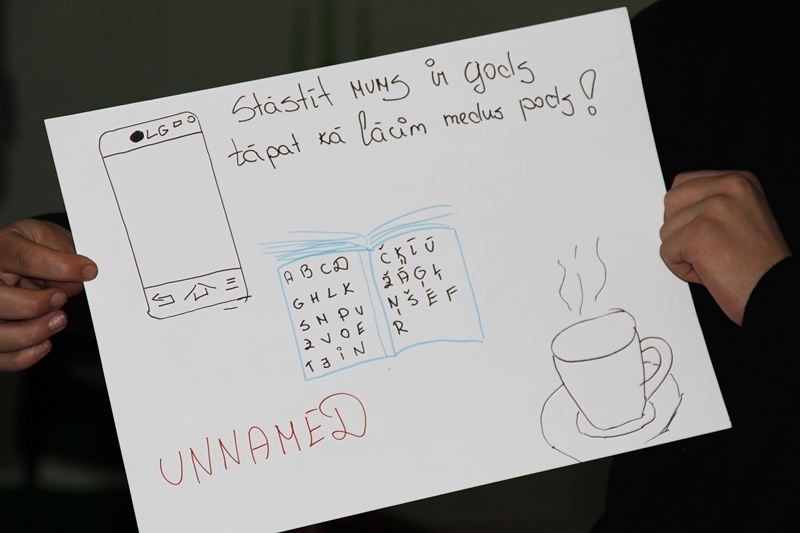 Stāstīt MUMS ir gods
tāpat kā lācim medus pods!
LG
A B C D
G H L K
S M P U
Z V O E
T J I N
Č Ķ Ī Ū
Ž Ā Ģ Ļ
Ņ Š Ē F
R
UNNAMED